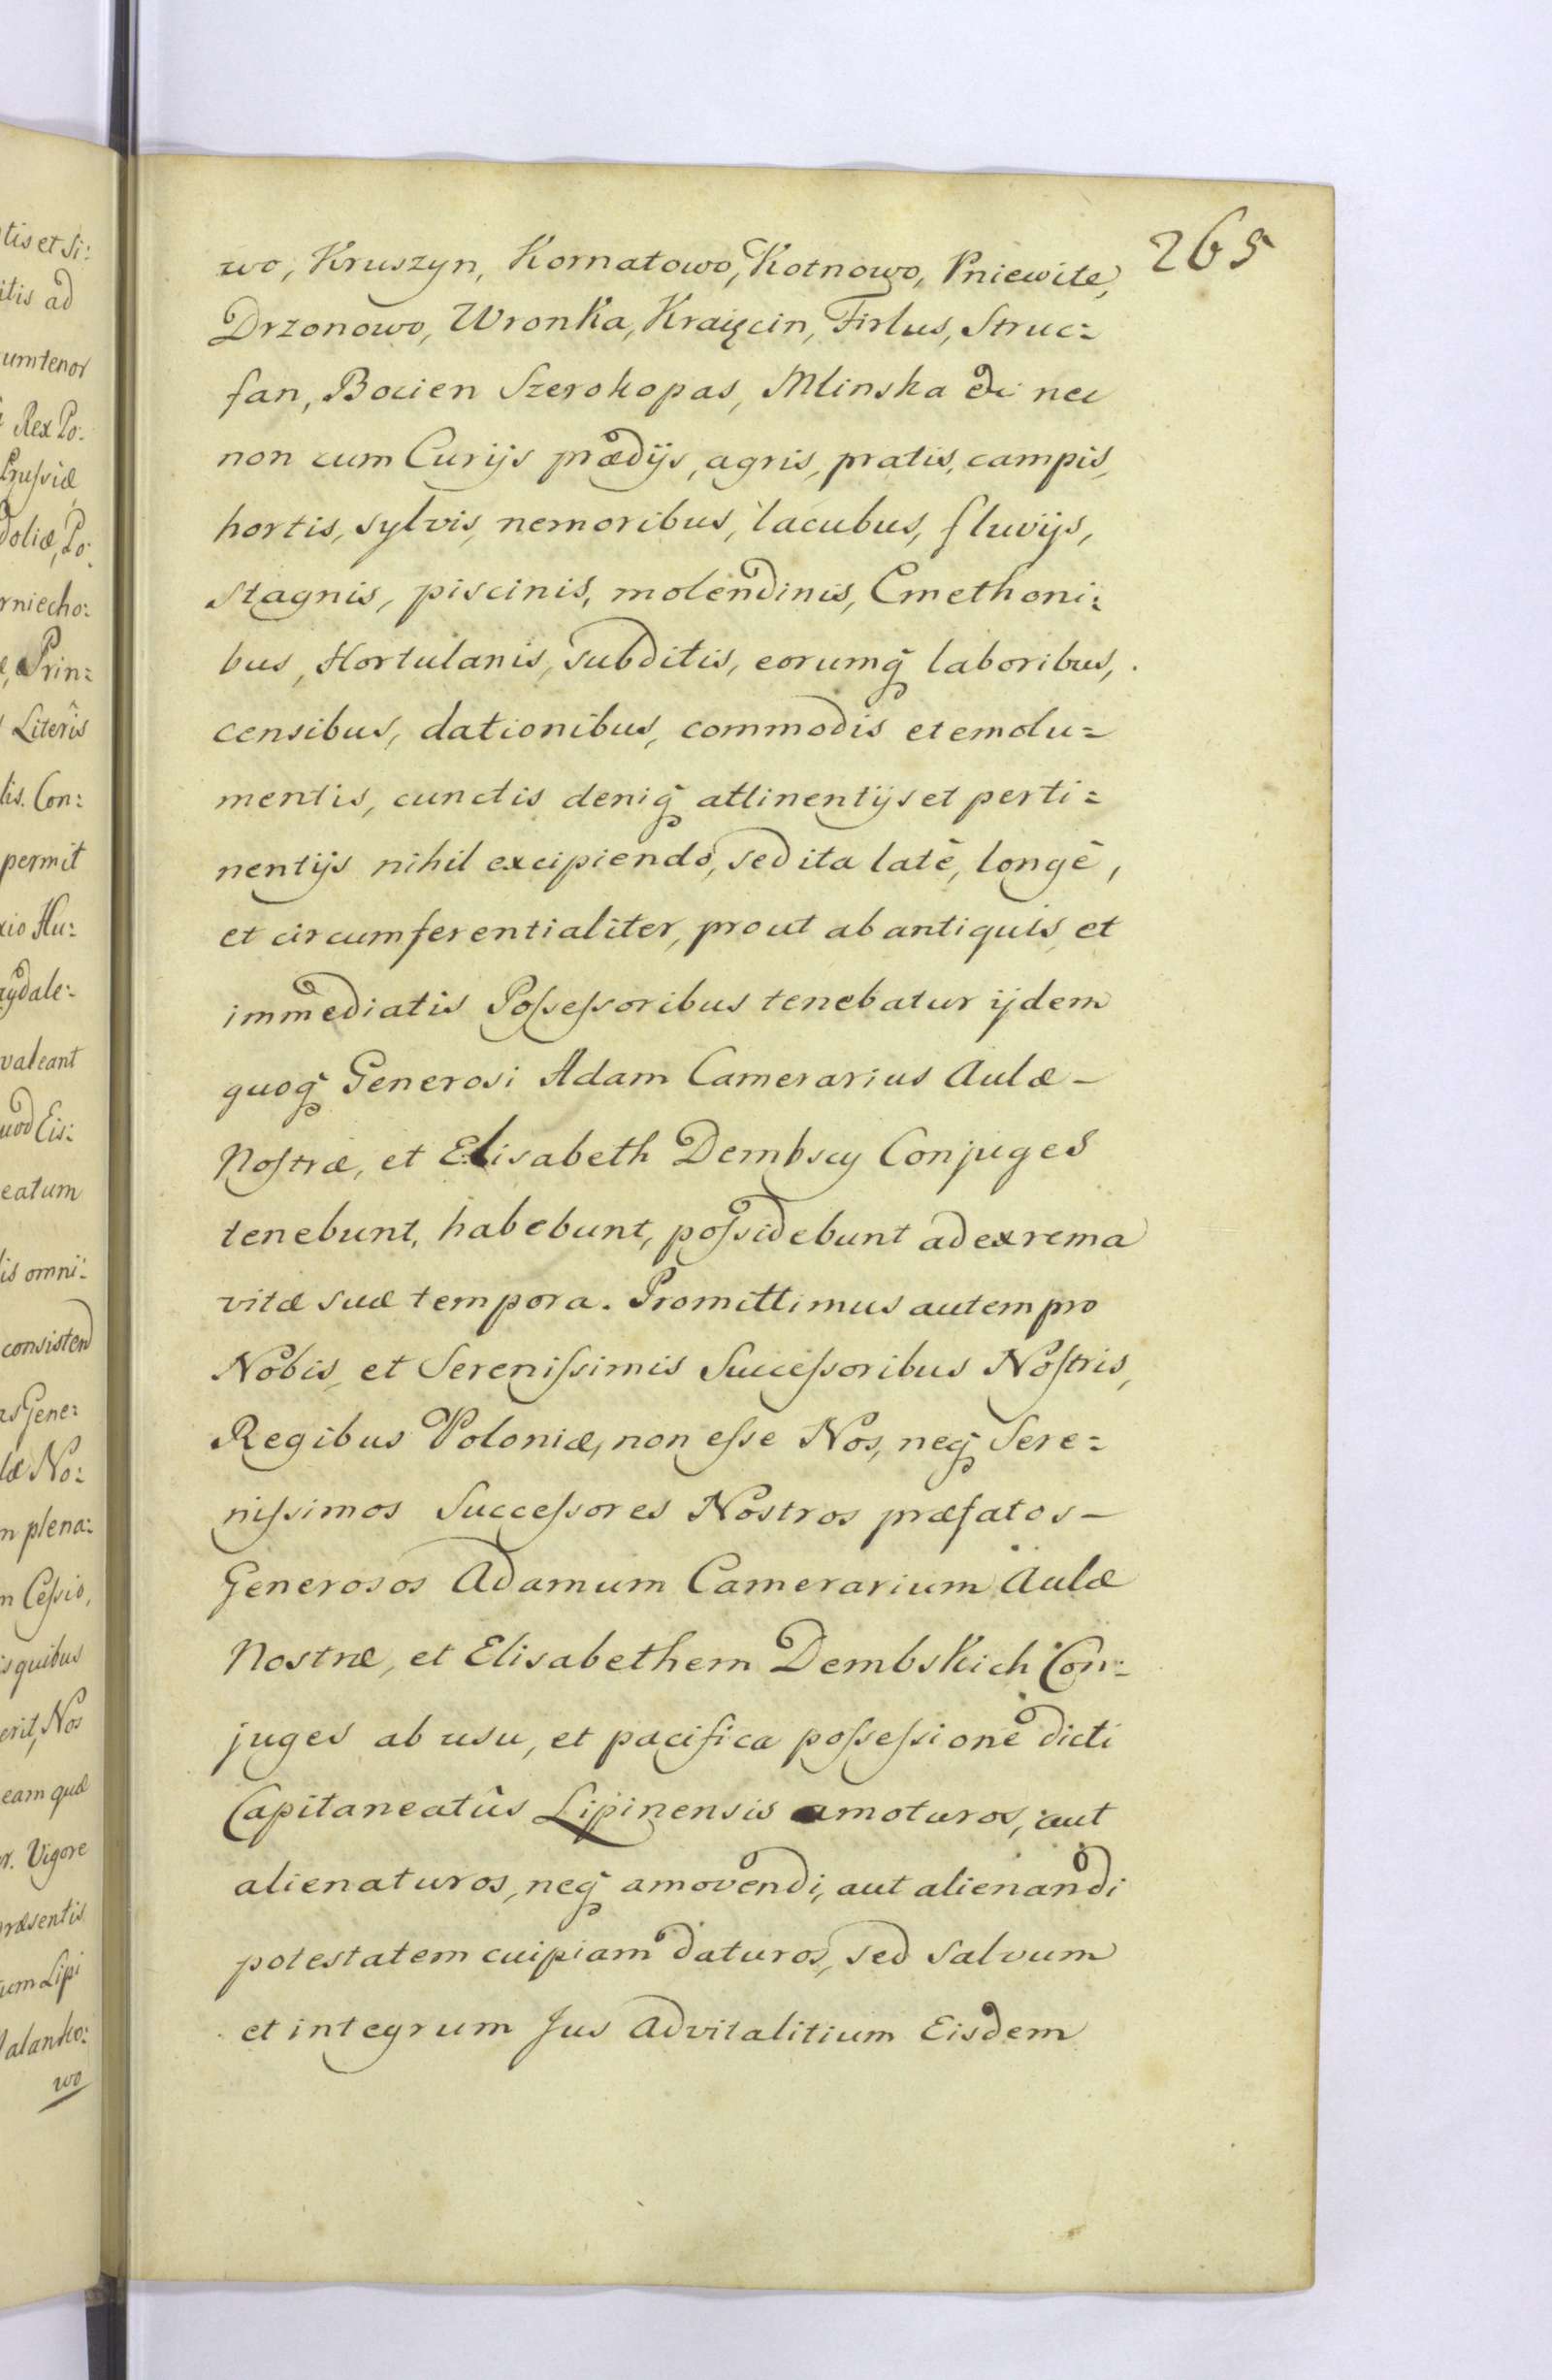 265
wo, Kruszyn, Kornatowo, Kotnowo, Pniewite,
Drzonowo, Wronka, Kraięcin, Firlus, Struc=
fan, Bocien Szerokopas, Mlinska &c nec
non cum Curijs prædijs, agris, pratis, campis,
hortis, sylvis, nemoribus, lacubus, fluvijs,
stagnis, piscinis, molendinis, Cmethoni:
bus, Hortulanis, subditis, eorumq̃ laboribus,
censibus, dationibus, commodis et emolu=
mentis, cunctis deniq̃ attinentijs et perti=
nentijs nihil excipiendo, sed ita latè, longè,
et circumferentialiter, prout ab antiquis, et
immediatis Poſseſsoribus tenebatur ijdem
quoq̃ Generosi Adam Camerarius Aulæ –
Noſtræ, et Elisabeth Dembscy Conjuges
tenebunt, habebunt, poſsidebunt ad exrema
vitæ suæ tempora. Promittimus autem pro
Nobis, et Sereniſsimis Succeſsoribus Noſtris,
Regibus Poloniæ, non eſse Nos, neq̃ Sere=
niſsimos Succeſsores Nostros præfatos –
Generosos Adamum Camerarium Aulæ
Nostræ, et Elisabethem Dembskich Con:
juges ab usu, et pacifica poſseſsione dicti
Capitaneatûs Lipinensis amoturos, aut
alienaturos, neq̃ amovendi, aut alienandi
potestatem cuipiam daturos, sed salvum
et integrum Jus Advitalitium Eisdem